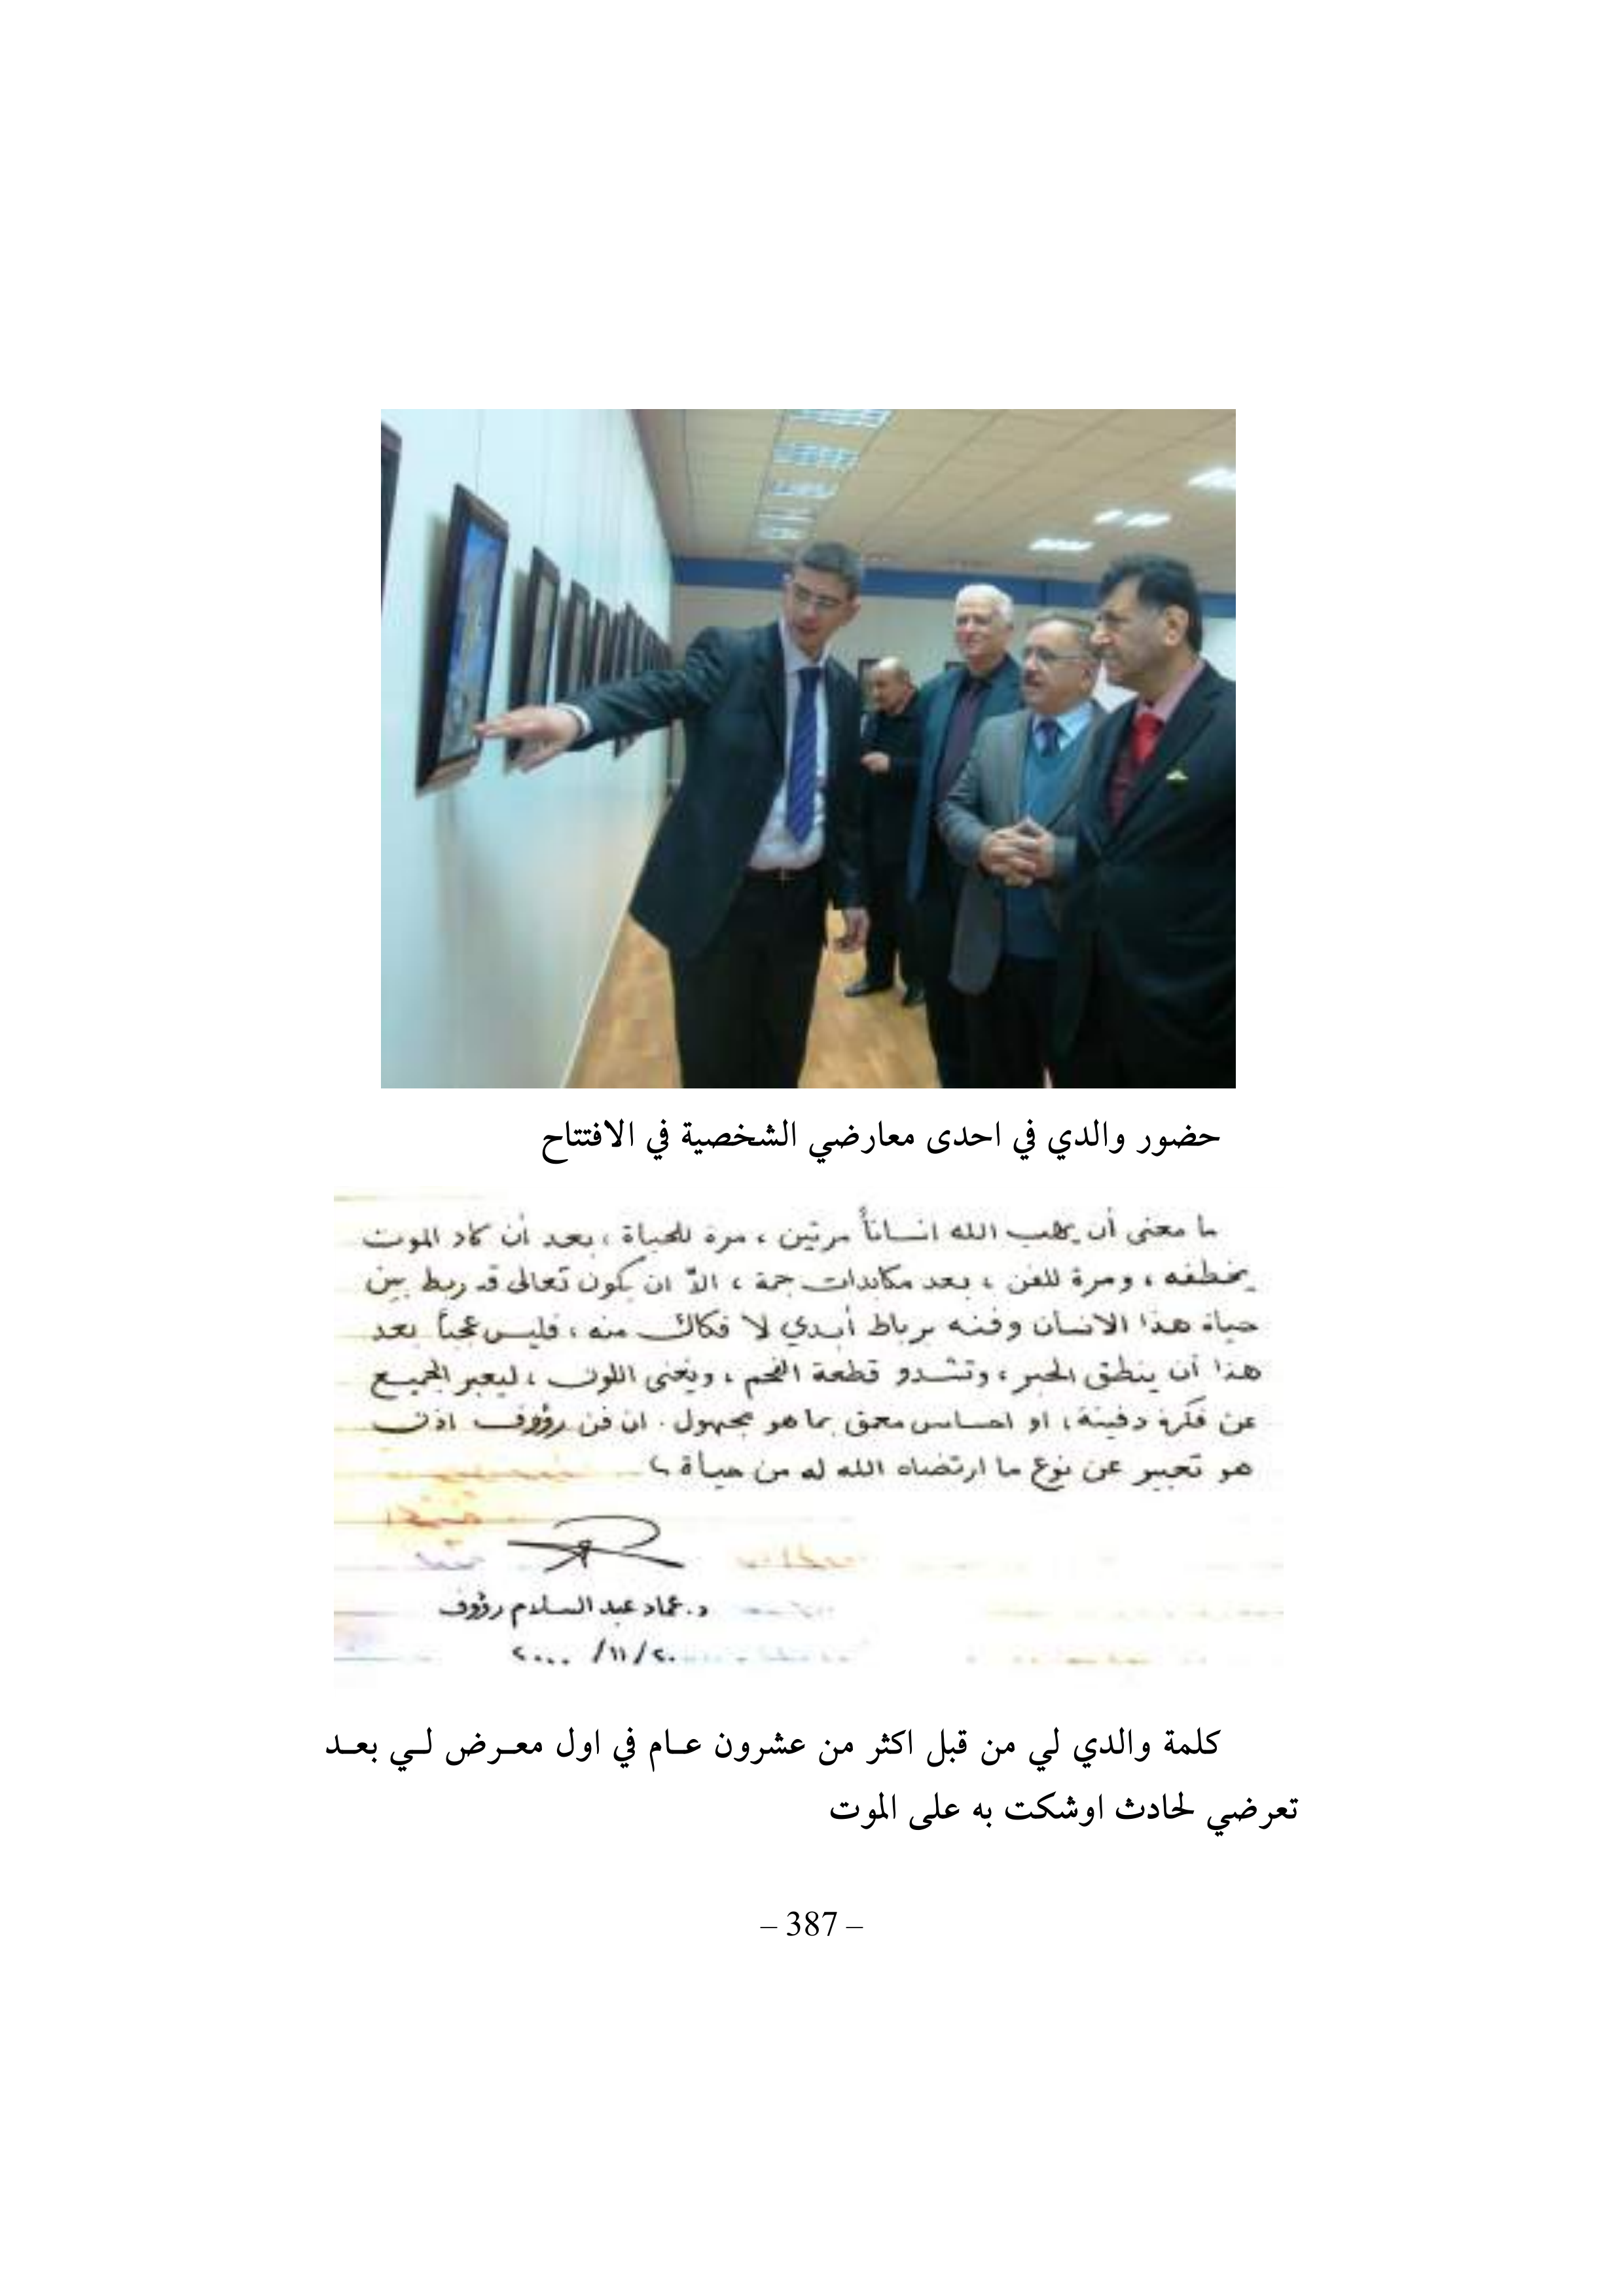 حضور والدي في احدى معارضي الشخصية في الافتتاح
ما معنى أن يهب الله انساناً مرتين ، مرة للحياة ، بعد أن كاد الموت
يخطفه ، ومرة للفن ، بعد مكابدات جمة ، الاّ ان يكون تعالى قد ربط بين
حياة هذا الانسان وفنه برباط أبدي لا فكاك منه ، فليس عجباً بعد
هذا أن ينطق الحبر ، وتشدو قطعة الفحم ، ويغنى اللون ، ليعبر الجميع
عن فكرة دفينة ، او احساس معمق بما هو مجهول . ان فن رؤوف اذن
هو تعبير عن نوع ما ارتضاه الله له من حياة
د. عماد عبد السلام رؤوف
٢٠ / ١١ / ٢٠٠٠
كلمة والدي لي من قبل اكثر من عشرون عـام في اول معـرض لـي بعـد
تعرضي لحادث اوشكت به على الموت
– 387 –